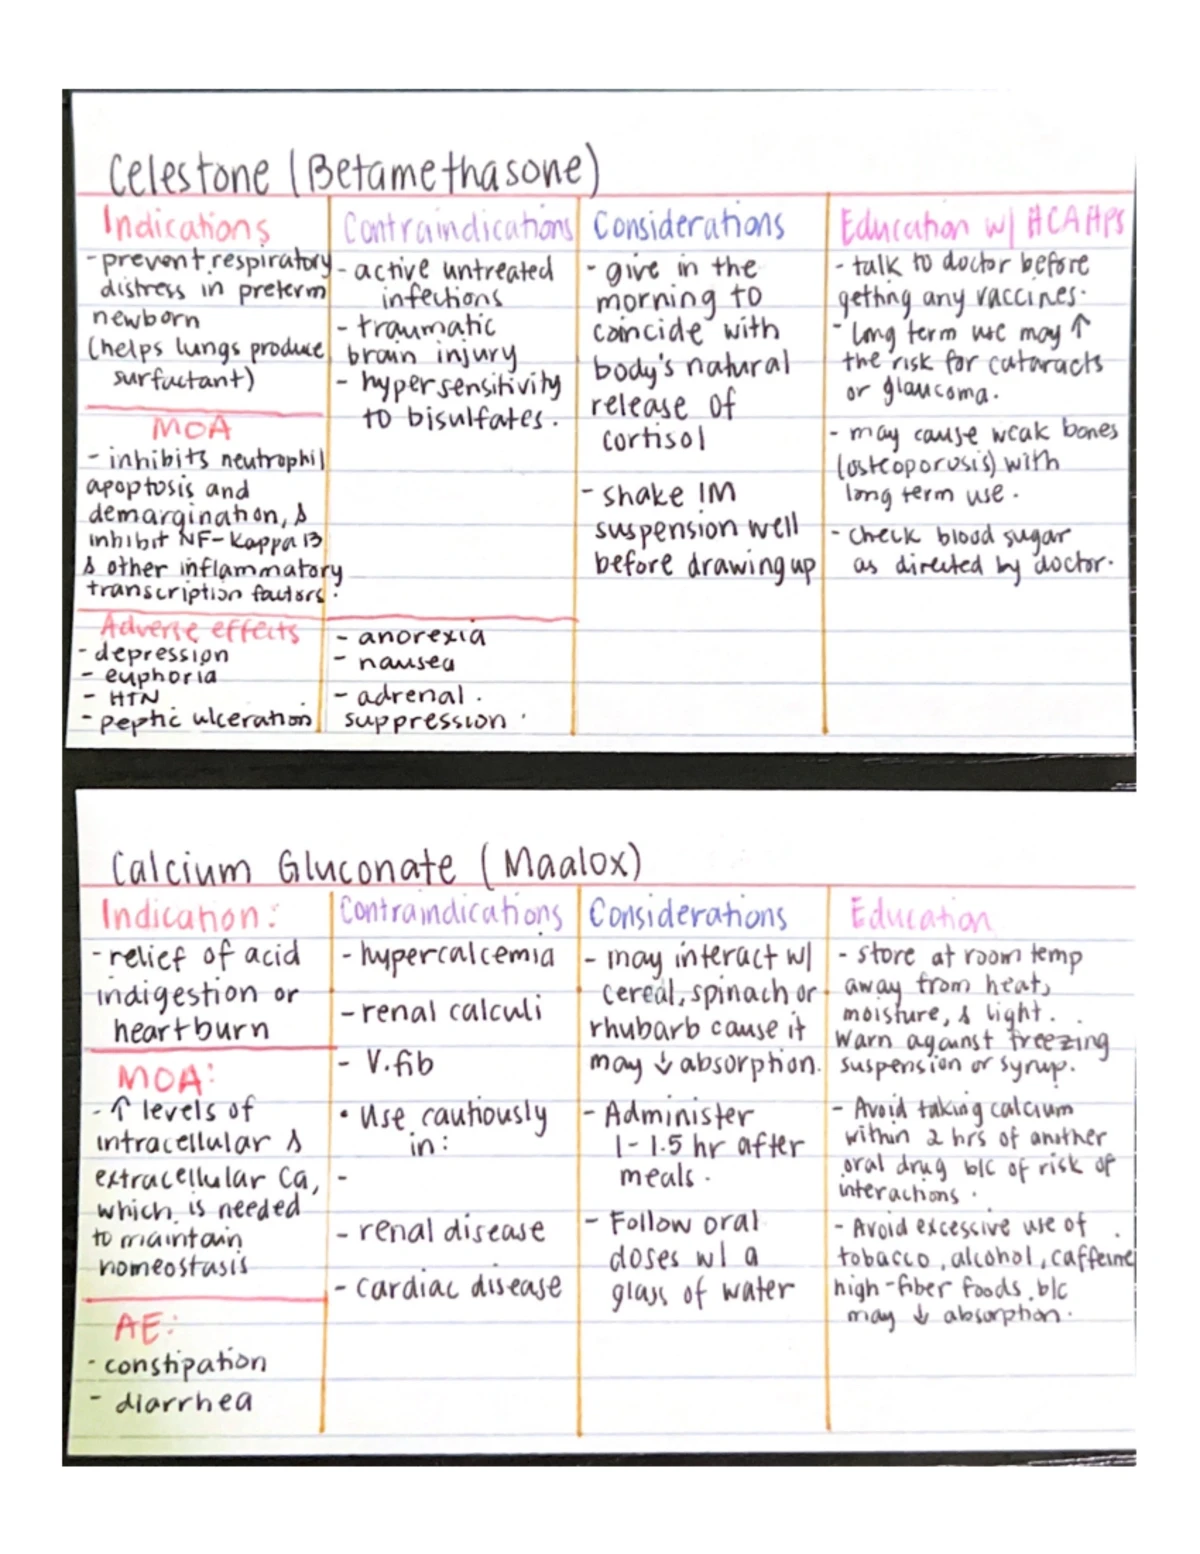 Celestone (Betamethasone)
Indications
- prevent respiratory
distress in preterm
newborn
(helps lungs produce
surfactant)
MOA
- inhibits neutrophil
apoptosis and
demargination, &
inhibit NF-Kappa B
& other inflammatory
transcription factors.
Adverse effects
- depression
- euphoria
- HTN
- peptic ulceration
Contraindications
- active untreated
infections
- traumatic
brain injury
- hypersensitivity
to bisulfates.
- anorexia
- nausea
- adrenal
suppression
Considerations
- give in the
morning to
coincide with
body's natural
release of
cortisol
- shake IM
suspension well
before drawing up
Education w/ HCAHPs
- talk to doctor before
getting any vaccines.
- long term use may ↑
the risk for cataracts
or glaucoma.
- may cause weak bones
(osteoporosis) with
long term use.
- check blood sugar
as directed by doctor.
Calcium Gluconate (Maalox)
Indication:
- relief of acid
indigestion or
heartburn
MOA:
- ↑ levels of
intracellular &
extracellular Ca,
which is needed
to maintain
homeostasis
AE:
- constipation
- diarrhea
Contraindications
- hypercalcemia
- renal calculi
- V.fib
• Use cautiously
in:
-
- renal disease
- cardiac disease
Considerations
- may interact w/
cereal, spinach or
rhubarb cause it
may ↓ absorption.
- Administer
1-1.5 hr after
meals.
- Follow oral
doses w/ a
glass of water
Education
- store at room temp
away from heat,
moisture, & light.
Warn against freezing
suspension or syrup.
- Avoid taking calcium
within 2 hrs of another
oral drug b/c of risk of
interactions.
- Avoid excessive use of
tobacco, alcohol, caffeine
high-fiber foods, b/c
may ↓ absorption.